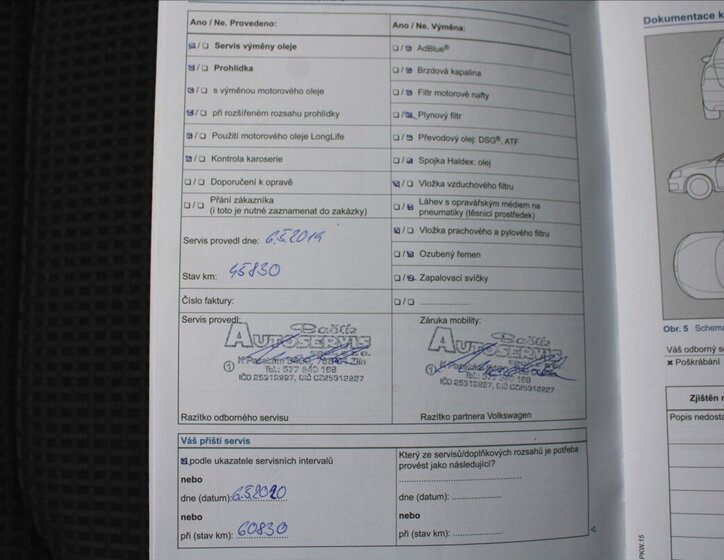 Ano / Ne. Provedeno:
☒/☐ Servis výměny oleje
☒/☐ Prohlídka
☒/☐ s výměnou motorového oleje
☒/☐ při rozšířeném rozsahu prohlídky
☒/☐ Použití motorového oleje LongLife
☒/☐ Kontrola karoserie
☐/☐ Doporučení k opravě
☐/☐ Přání zákazníka
(i toto je nutné zaznamenat do zakázky)
Servis provedl dne: 6.5.2019
Stav km: 45830
Číslo faktury:
Servis provedl:
AUTOSERVIS
Razítko odborného servisu
Ano / Ne. Výměna:
☐/☒ AdBlue®
☐/☒ Brzdová kapalina
☐/☒ Filtr motorové nafty
☐/☒ Plynový filtr
☐/☒ Převodový olej: DSG®, ATF
☐/☒ Spojka Haldex: olej
☒/☐ Vložka vzduchového filtru
☐/☒ Láhev s opravářským médiem na
pneumatiky (těsnicí prostředek)
☒/☐ Vložka prachového a pylového filtru
☐/☒ Ozubený řemen
☐/☒ Zapalovací svíčky
☐/☐ ....................
Záruka mobility:
AUTOSERVIS
Razítko partnera Volkswagen
Váš příští servis
☒ podle ukazatele servisních intervalů
nebo
dne (datum): 6.5.2020
nebo
při (stav km): 60830
Který ze servisů/doplňkových rozsahů je potřeba
provést jako následující?
dne (datum): ....................
nebo
při (stav km): ....................
Dokumentace k
Obr. 5 Schema
Váš odborný se
✖ Poškrábání
Zjištěn n
Popis nedosta
PKW.15